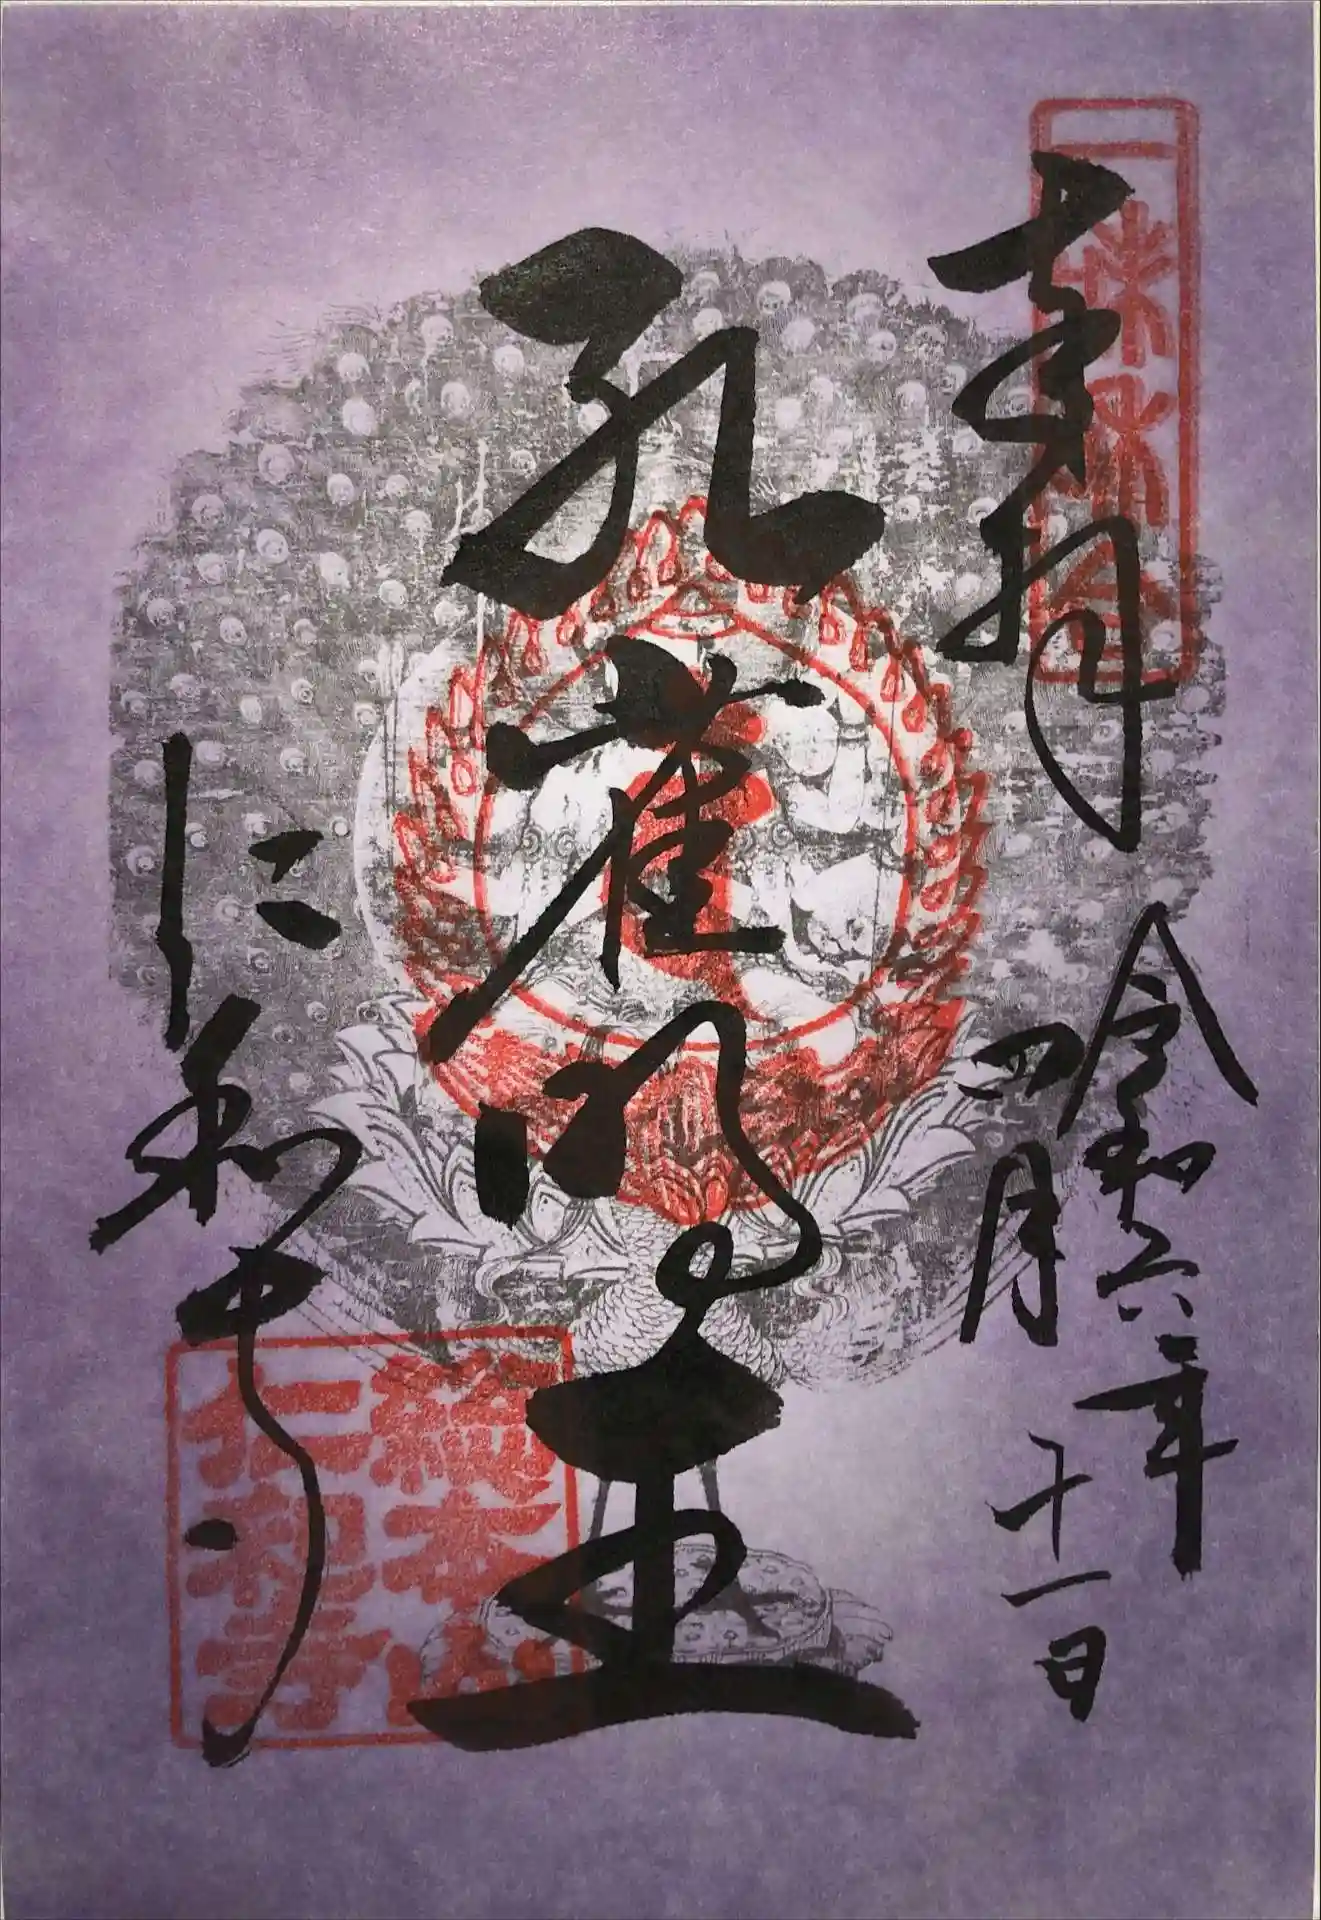 奉拝
令和六年
四月十一日
孔雀明王
仁和寺
総本山
仁和寺